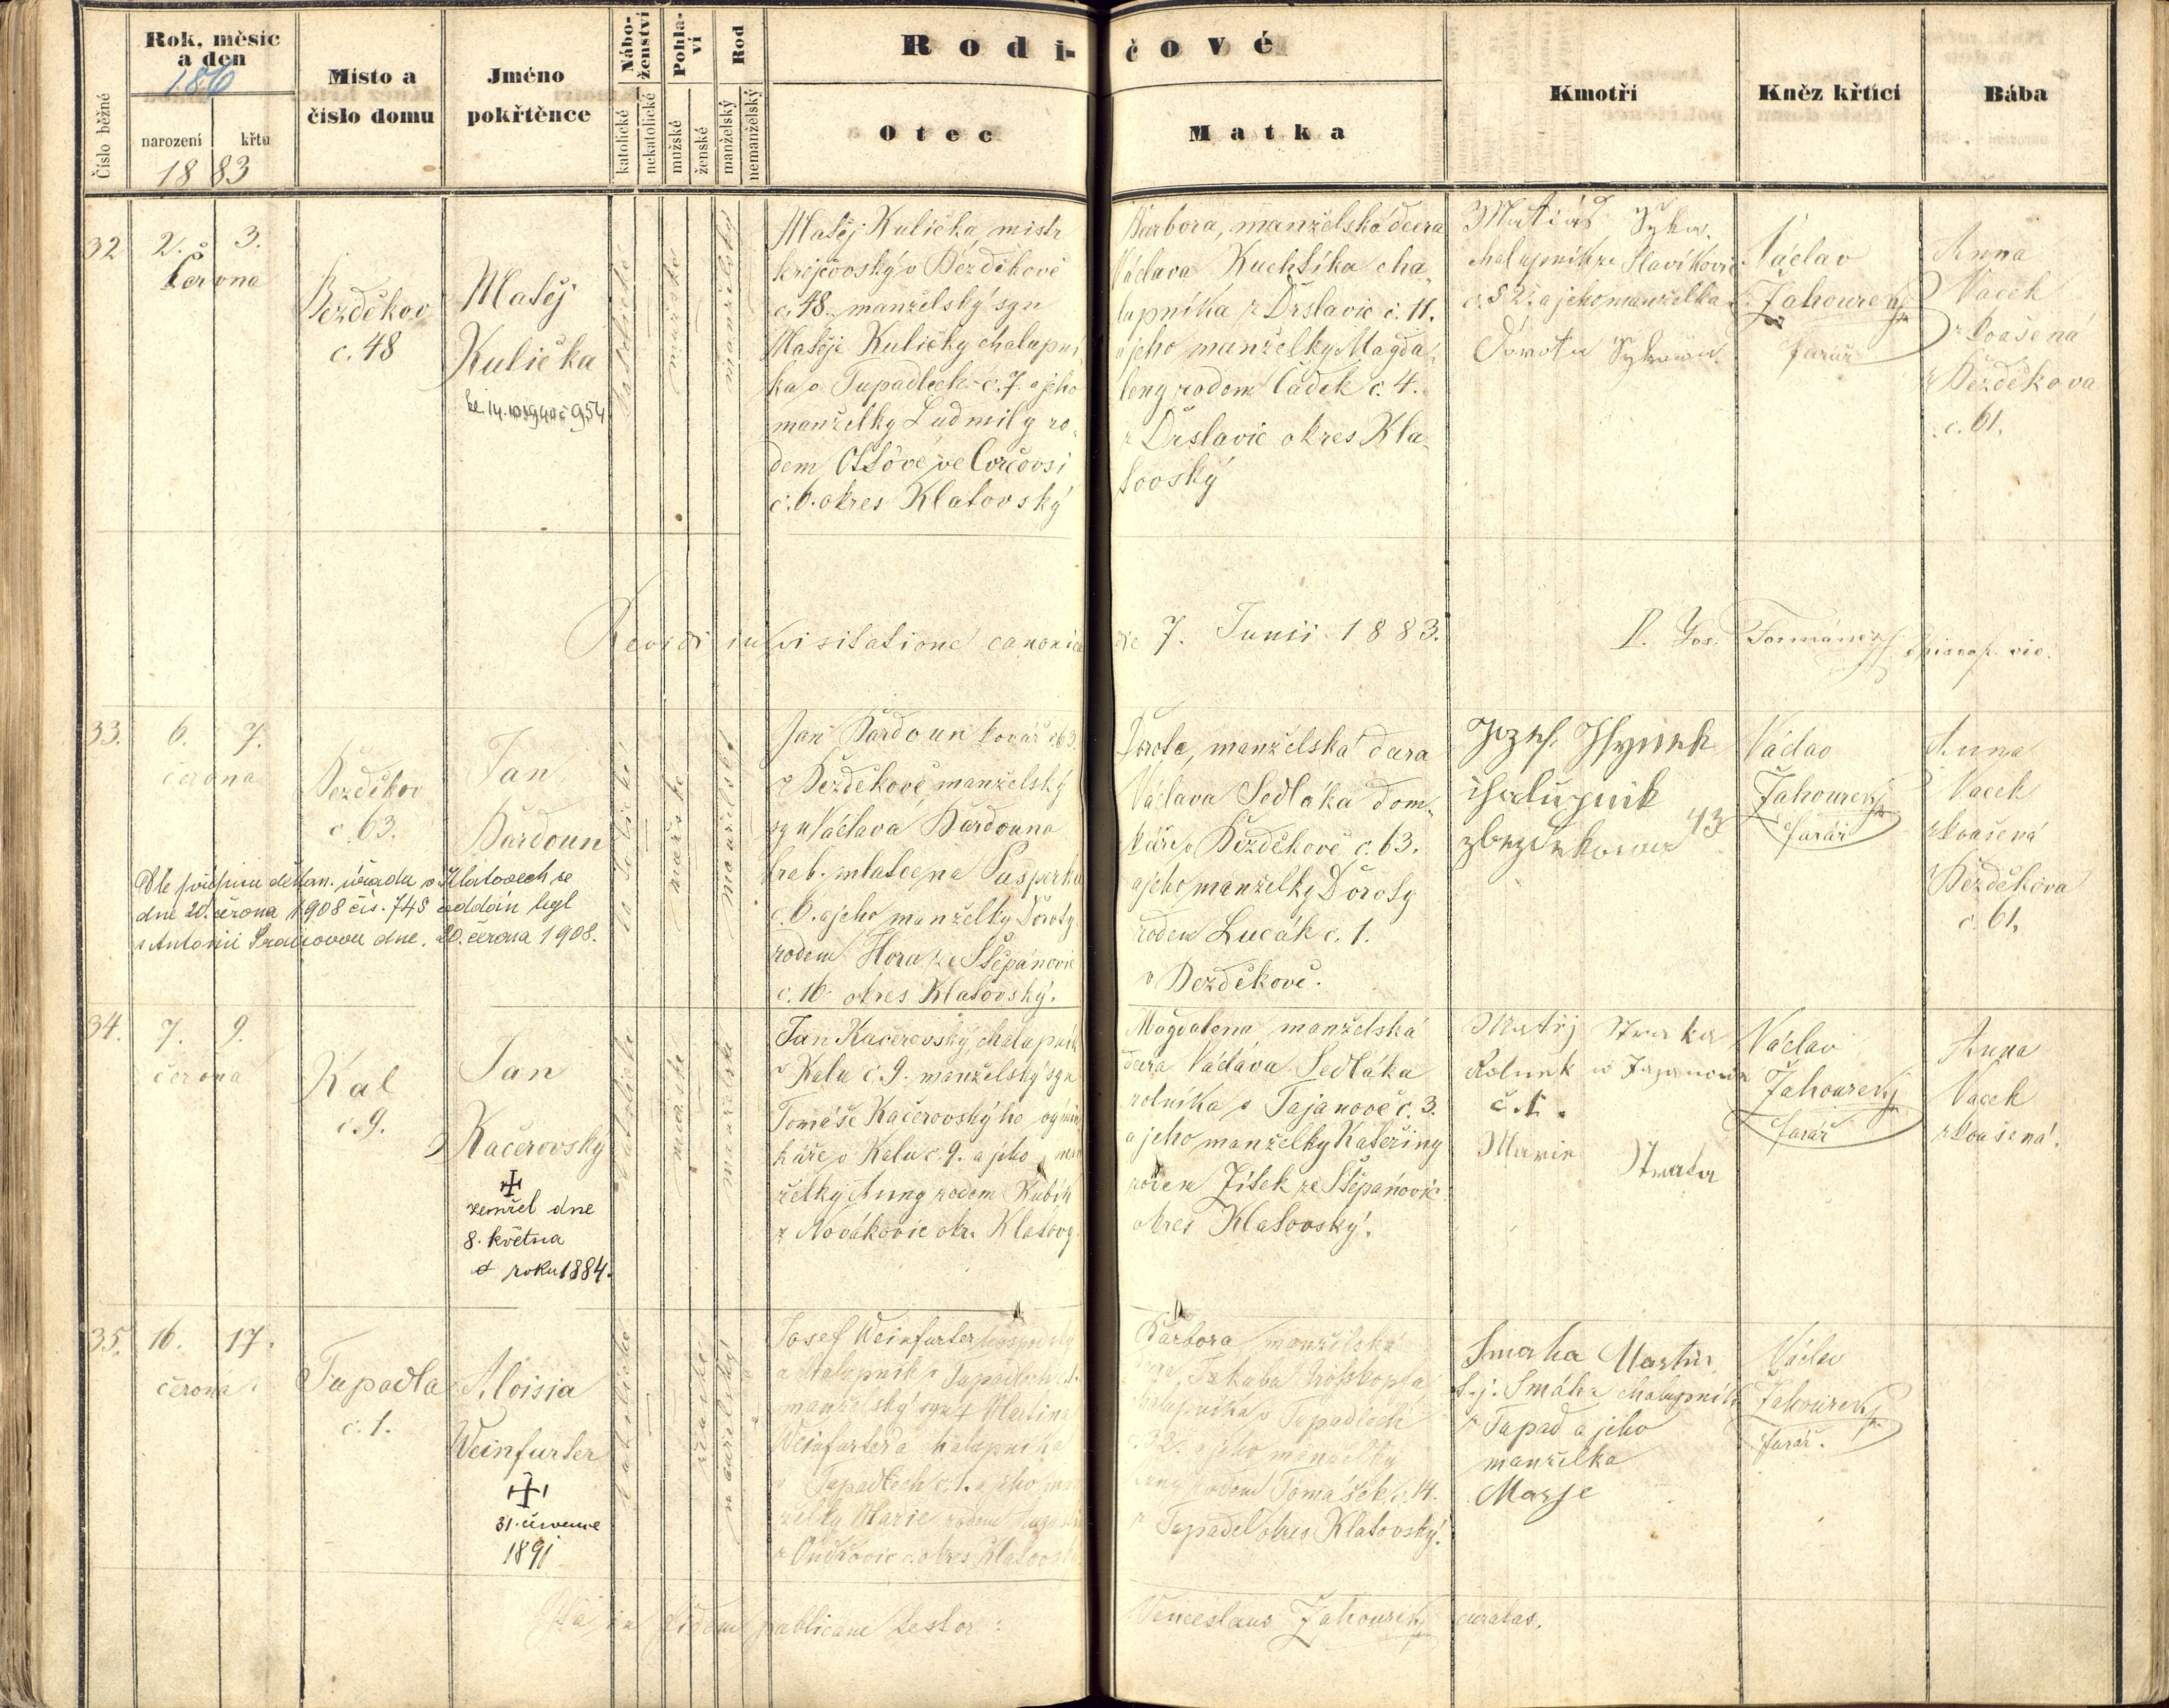 Číslo běžné
Rok, měsíc
a den
186
narození
křtu
1883
Místo a
číslo domu
Jméno
pokřtěnce
Nábo-
ženství
katolické
nekatolické
Pohla-
ví
mužské
ženské
Rod
manželský
nemanželský
Rodi-
čové
Otec
Matka
Kmotři
Kněz křtící
Bába
32
2. 3.
června
Bezděkov
č. 48
Matěj
Kulička
katolické
mužské
manželský
Matěj Kulička mistr
krejčovský v Bezděkově
č. 48. manželský syn
Matěje Kuličky chalupní
ka v Tupadlech č. 7. a jeho
manželky Ludmily ro-
dem Ottové ve
č. 6. okres Klatovský
Barbora, manželská dcera
Václava Kuchtíka cha-
lupníka z Drslavic č. 11.
a jeho manželky Magda-
leny rodem Čadek č. 4.
z Drslavic okres Kla-
tovský
Matiáš Sýkora
chalupník ze Slavíkovic
č. 52. a jeho manželka
Dorota Sýkorova
Václav
Zahourek
farář
Anna
Vacek
zkoušená
z Bezděkova
č. 61.
Revidi in visitatione canonica
de 7. Junii 1883.
P. Jos. Formánek
Episcop. vic.
33.
6. 7.
června
Bezděkov
č. 63.
Jan
Bardoun
katolické
mužské
manželské
Dle přípisu děkan. úřadu v Klatovech se
dne 20. června 1908 čís. 748 oddán byl
s Antonií dne 20. června 1908.
Jan Bardoun kovář č. 63.
v Bezděkově manželský
syn Václava Bardouna
hrab. mlatce na
č. 6. a jeho manželky Doroty
rodem Hora ze Štěpánovic
č. 16. okres Klatovský.
Dorota, manželská dcera
Václava Sedláka dom-
káře v Bezděkově č. 63.
a jeho manželky Doroty
rodem Lucák č. 1.
v Bezděkově.
Jozef Hynek
chalupník
z Bezděkova 43
Václav
Zahourek
farář
Anna
Vacek
zkoušená
z Bezděkova
č. 61.
34.
7. 9.
června
Kal
č. 9.
Jan
Kačerovský
zemřel dne
8. května
roku 1884.
katolické
mužské
manželské
Jan Kačerovský, chalupník
v Kalu č. 9. manželský syn
Tomáše Kačerovského vymin
káře v Kalu č. 9. a jeho man
želky Anny rodem Kubík
z Novákovic okr. Klatovy
Magdalena manželská
dcera Václava Sedláka
rolníka v Tajanově č. 3.
a jeho manželky Kateřiny
rodem Jílek ze Štěpánovic
okres Klatovský.
Matěj Straka
Rolník v Tajanově
č. 1.
Marie Straka
Václav
Zahourek
farář
Anna
Vacek
zkoušená.
35.
16. 17.
června.
Tupadla
č. 1.
Aloisia
Weinfurter
31. července
1891
katolické
ženské
manželský
Josef Weinfurter
a chalupník v Tupadlech č. 1.
manželský syn † Martina
Weinfurtera chalupníka
v Tupadlech č. 1. a jeho man
želky Marie rodem
okres Klatovský
Barbora manželská
dcera Jakuba
chalupníka v Tupadlech
č. 32. jeho manželky
Anny rodem Tomášek č. 14.
z Tupadel okres Klatovský.
Smaha Martin
t. j. Smáha chalupník
z Tupad a jeho
manželka
Marje
Václav
Zahourek
farář.
Ita in fidem publicam testor:
Venceslaus Zahourek curatus.